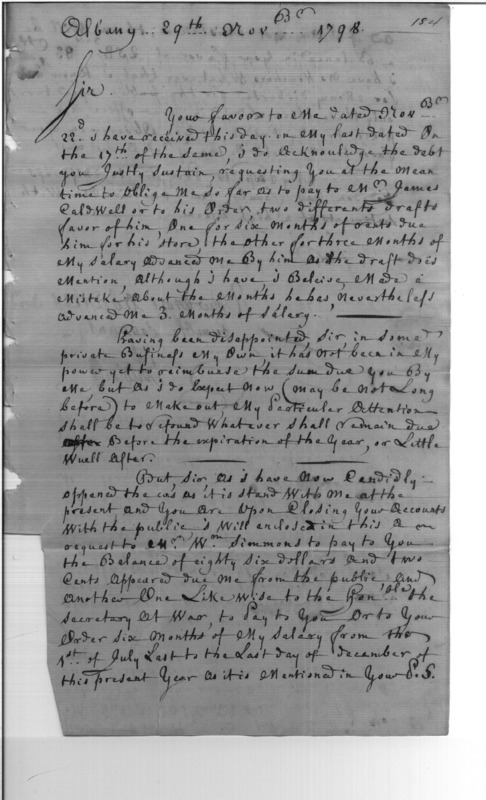 Albany.. 29th.. Nov Br.. 1798.
1501
Sir
Your favor to Me dated Nov Br
22.d i have received this day. in My last dated On
the 17th of the same, i do acknowledge, the debt
you Justly Sustain, requesting You at the Mean
time to Oblige Me so far as to pay to Mr James
Caldwell or to his Order, two differents drafts
favor of him, One for six Months of rents due
him for his store, the other for three Months of
My salary advanced Me By him as the draft does
Mention, Although i have, i Beleive, Made a
Mistake About the Months he has, Nevertheless
advanced Me 3. Months of Salary.
Having been disappointed, Sir, in some
private Business My Own, it has Not been in My
power yet to reimburse the sum due You By
Me, but as i do Expect Now (may be Not Long
before) to Make out, My Particular Attention
shall be to refound Whatever shall remain due
Before the expiration of the Year, or Little
Wuell After.
But, Sir, as i have Now Candidly
oppened the cas as it is stand With Me at the
present and You are Upon Closing Your Accounts
With the public i Will enclosed in this a
request to Mr Wm Simmons to pay to You
the Balance of eighty six dollars and two
Cents appeared due Me from the public and
Another One Like Wise to the Honble the
secretary At War, to Pay to You Or to Your
Order six Months of My Salary from the
1st of July Last to the Last day of december of
this present Year as it is Mentioned in Your P.S.